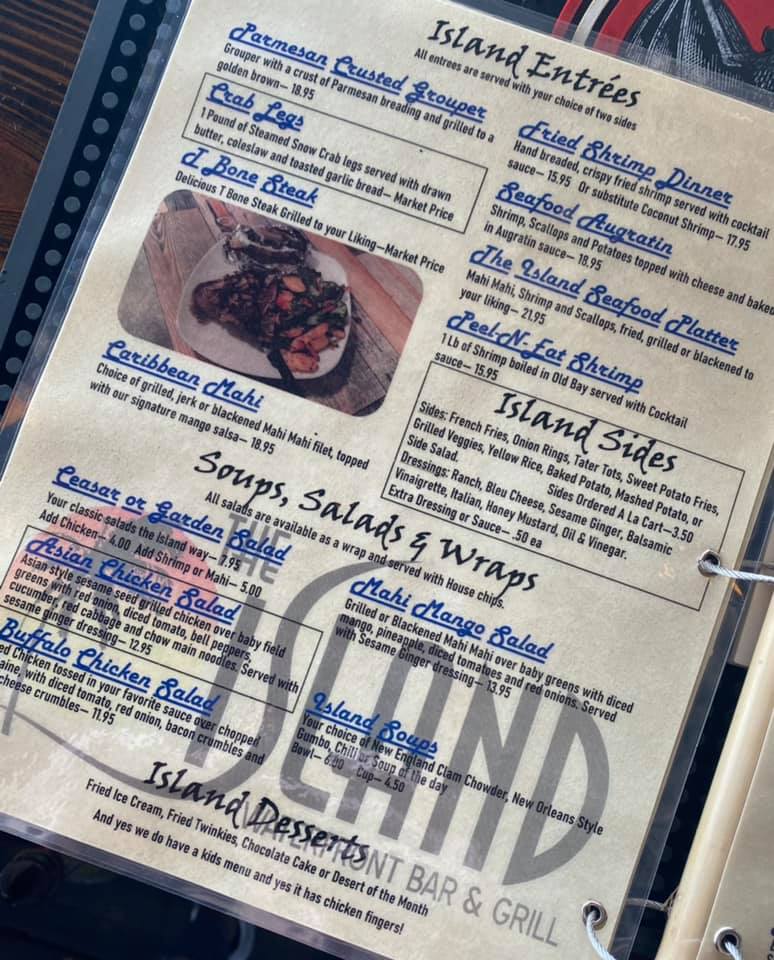 Island Entrées
All entrees are served with your choice of two sides
Parmesan Crusted Grouper
Grouper with a crust of Parmesan breading and grilled to a
golden brown— 18.95
Crab Legs
1 Pound of Steamed Snow Crab legs served with drawn
butter, coleslaw and toasted garlic bread— Market Price
T Bone Steak
Delicious T Bone Steak Grilled to your Liking—Market Price
Caribbean Mahi
Choice of grilled, jerk or blackened Mahi Mahi filet, topped
with our signature mango salsa— 18.95
Fried Shrimp Dinner
Hand breaded, crispy fried shrimp served with cocktail
sauce— 15.95 Or substitute Coconut Shrimp— 17.95
Seafood Augratin
Shrimp, Scallops and Potatoes topped with cheese and baked
in Augratin sauce— 18.95
The Island Seafood Platter
Mahi Mahi, Shrimp and Scallops, fried, grilled or blackened to
your liking— 21.95
Peel-N-Eat Shrimp
1 Lb of Shrimp boiled in Old Bay served with Cocktail
sauce— 15.95
Island Sides
Sides: French Fries, Onion Rings, Tater Tots, Sweet Potato Fries,
Grilled Veggies, Yellow Rice, Baked Potato, Mashed Potato, or
Side Salad.
Sides Ordered A La Cart—3.50
Dressings: Ranch, Bleu Cheese, Sesame Ginger, Balsamic
Vinaigrette, Italian, Honey Mustard, Oil & Vinegar.
Extra Dressing or Sauce— .50 ea
Soups, Salads & Wraps
All salads are available as a wrap and served with House chips.
Ceasar or Garden Salad
Your classic salads the Island way— 7.95
Add Chicken— 4.00 Add Shrimp or Mahi— 5.00
Asian Chicken Salad
Asian style sesame seed grilled chicken over baby field
greens with red onion, diced tomato, bell peppers,
Cucumber, red cabbage and chow main noodles. Served with
sesame ginger dressing— 12.95
Buffalo Chicken Salad
ed Chicken tossed in your favorite sauce over chopped
aine, with diced tomato, red onion, bacon crumbles and
cheese crumbles— 11.95
Mahi Mango Salad
Grilled or Blackened Mahi Mahi over baby greens with diced
mango, pineapple, diced tomatoes and red onions. Served
with Sesame Ginger dressing— 13.95
Island Soups
Your choice of New England Clam Chowder, New Orleans Style
Gumbo, Chili or Soup of the day
Bowl— 6.00 Cup— 4.50
Island Desserts
Fried Ice Cream, Fried Twinkies, Chocolate Cake or Desert of the Month
And yes we do have a kids menu and yes it has chicken fingers!
THE
ISLAND
WATERFRONT BAR & GRILL